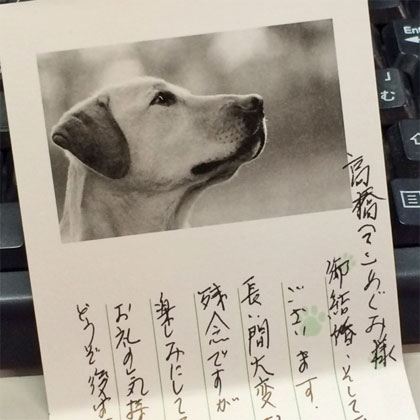 高橋(マ)めぐみ様
御結婚、そして
ございます。
長い間大変
残念ですが
楽しみにして
お礼の気持
どうぞ後
Ent
む